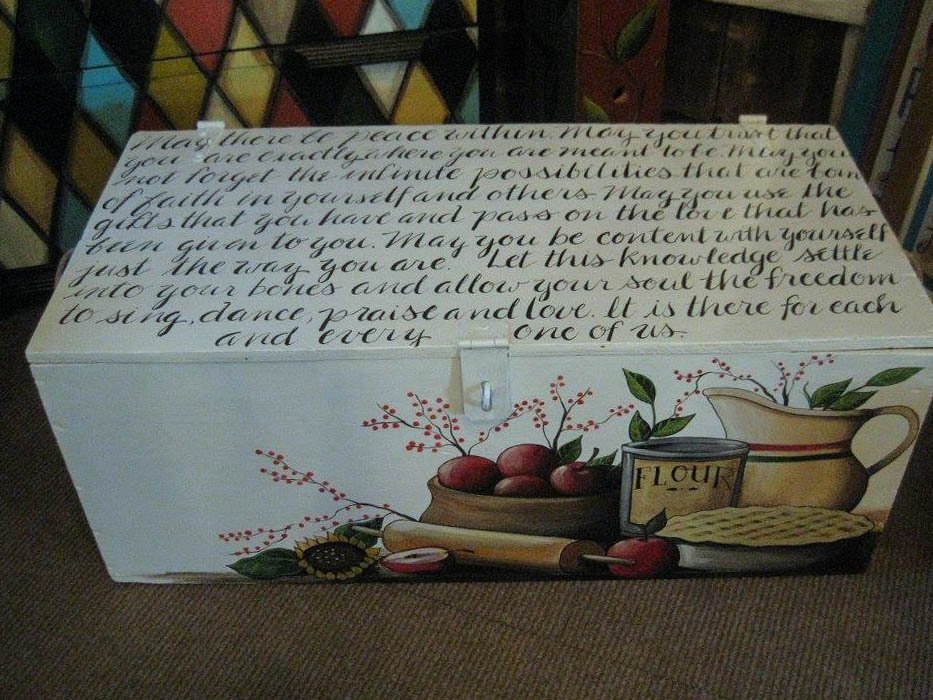 May there be peace within. May you trust that
you are exactly where you are meant to be. May you
not forget the infinite possibilities that are born
of faith in yourself and others May you use the
gifts that you have and pass on the love that has
been given to you. May you be content with yourself
just the way you are. Let this knowledge settle
into your bones and allow your soul the freedom
to sing, dance, praise and love. It is there for each
and every one of us.
FLOUR